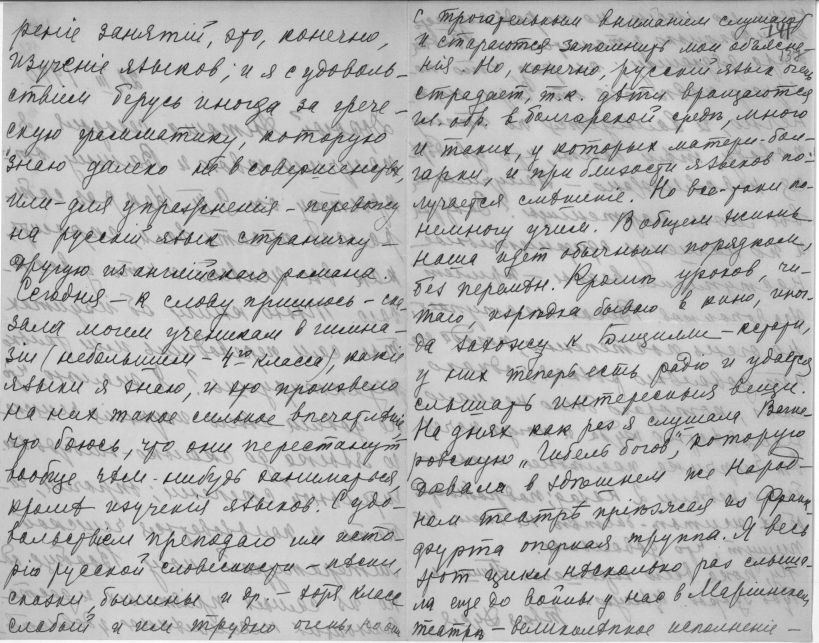 реніе занятій, это, конечно,
изученіе языковъ; и я съ удоволь-
ствіем берусь иногда за грече-
скую грамматику, которую
знаю далеко не в совершенствѣ
или – для упражненія – перевожу
на русскій язык страничку –
другую из англійскаго романа.
Сегодня – к слову пришлось – ска-
зала моим ученикам в гимна-
зіи (небольшим – 4го класса), какіе
языки я знаю, и это произвело
на них такое сильное впечатлѣніе,
что боюсь, что они перестанут
вообще чѣм-нибудь заниматься,
кромѣ изученія языков. С удо-
вольствіем преподаю им исто-
рію русской словесности – пѣсни,
сказки, былины и др. – хотя класс
слабый и им трудно очень, но они
с трогательным вниманіем слушают
и стараются запомнить мои объясне-
нія. Но, конечно, русскій язык очень
страдает, т.к. дѣти вращаются
гл. обр. в болгарской средѣ, много
и таких, у которых матери-бол-
гарки, и при близости языков по-
лучается смѣшеніе. Но все-таки по-
немногу учим. В общем жизнь
наша идет обычным порядком,
без перемѣн. Кромѣ уроков, чи-
таю, изрѣдка бываю в кино, иног-
да захожу к Бицилли – кстати,
у них теперь есть радіо и удается
слышать интересныя вещи.
На днях как раз я слушала Вагне-
ровскую „Гибель богов", которую
давала в здѣшнем же Народ-
ном театрѣ пріѣзжая из Франк-
фурта оперная труппа. Я весь
этот цикл нѣсколько раз слыша-
ла еще до войны у нас в Маріинском
театрѣ – великолѣпное исполненіе –